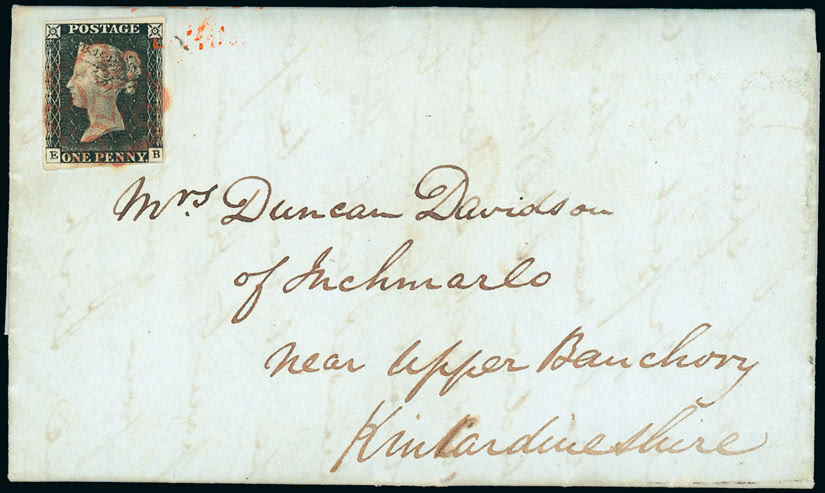 POSTAGE
ONE PENNY
E B
Mrs Duncan Davidson
of Inchmarlo
near Upper Banchory
Kinkardineshire